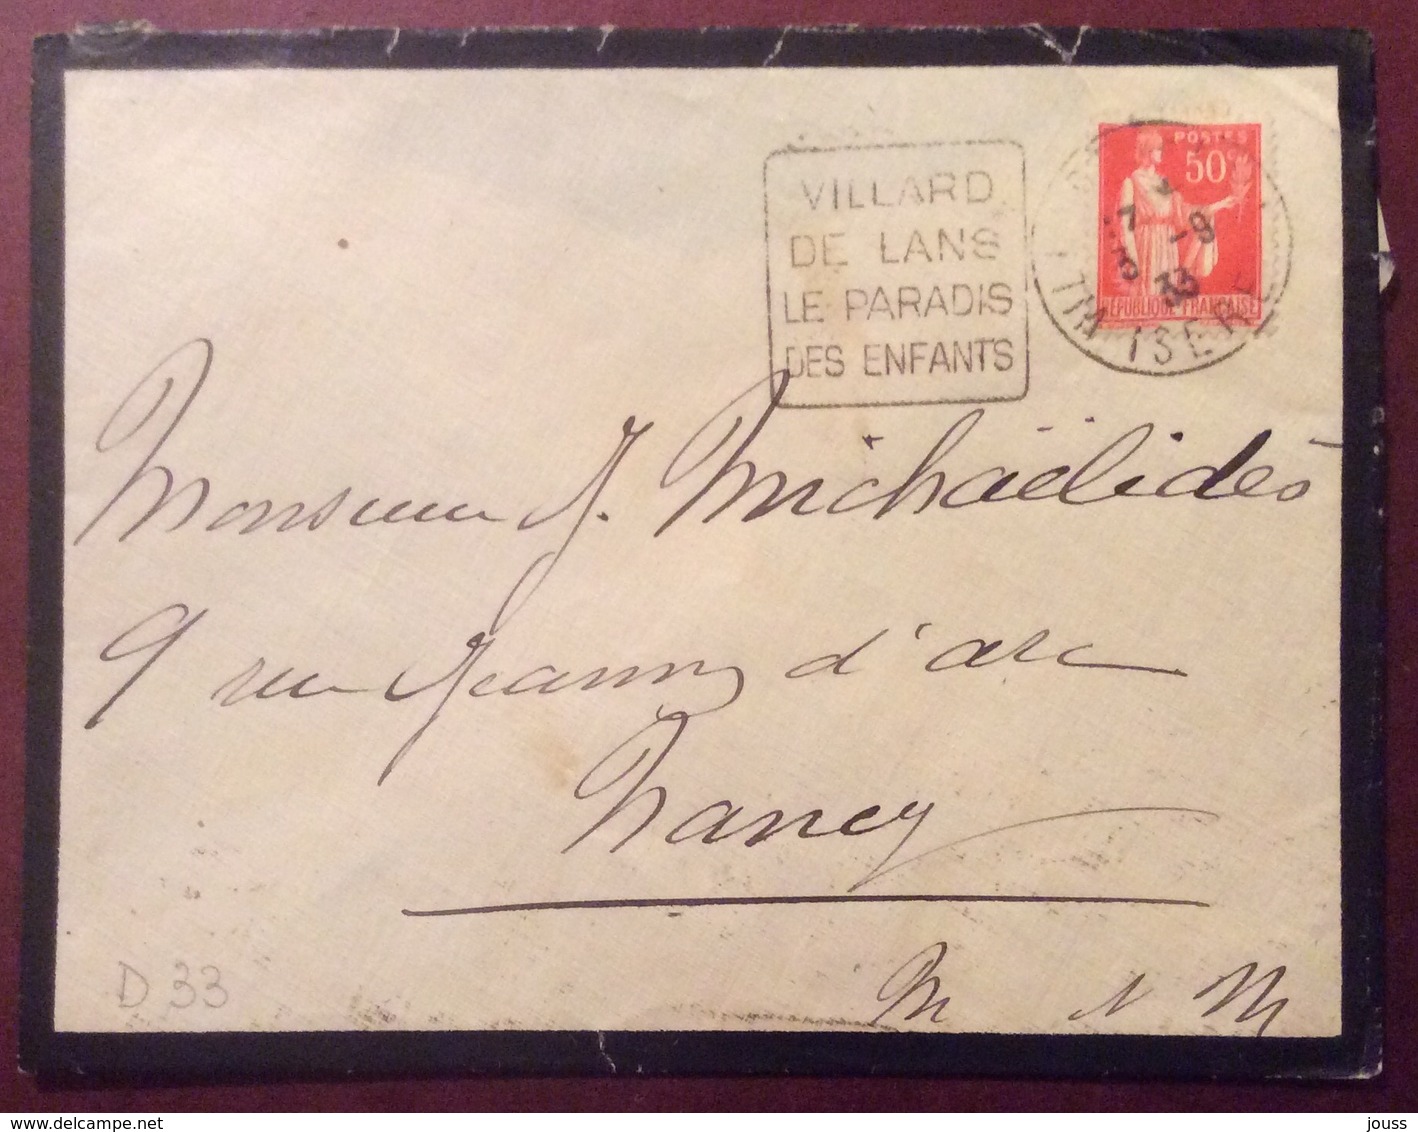 POSTES
50c
RÉPUBLIQUE FRANÇAISE
7 -9
33
ISERE
VILLARD
DE LANS
LE PARADIS
DES ENFANTS
Monsieur J. Michaëlidès
9 rue Jeanne d'arc
Nancy
M & M
D 33
www.delcampe.net
jouss